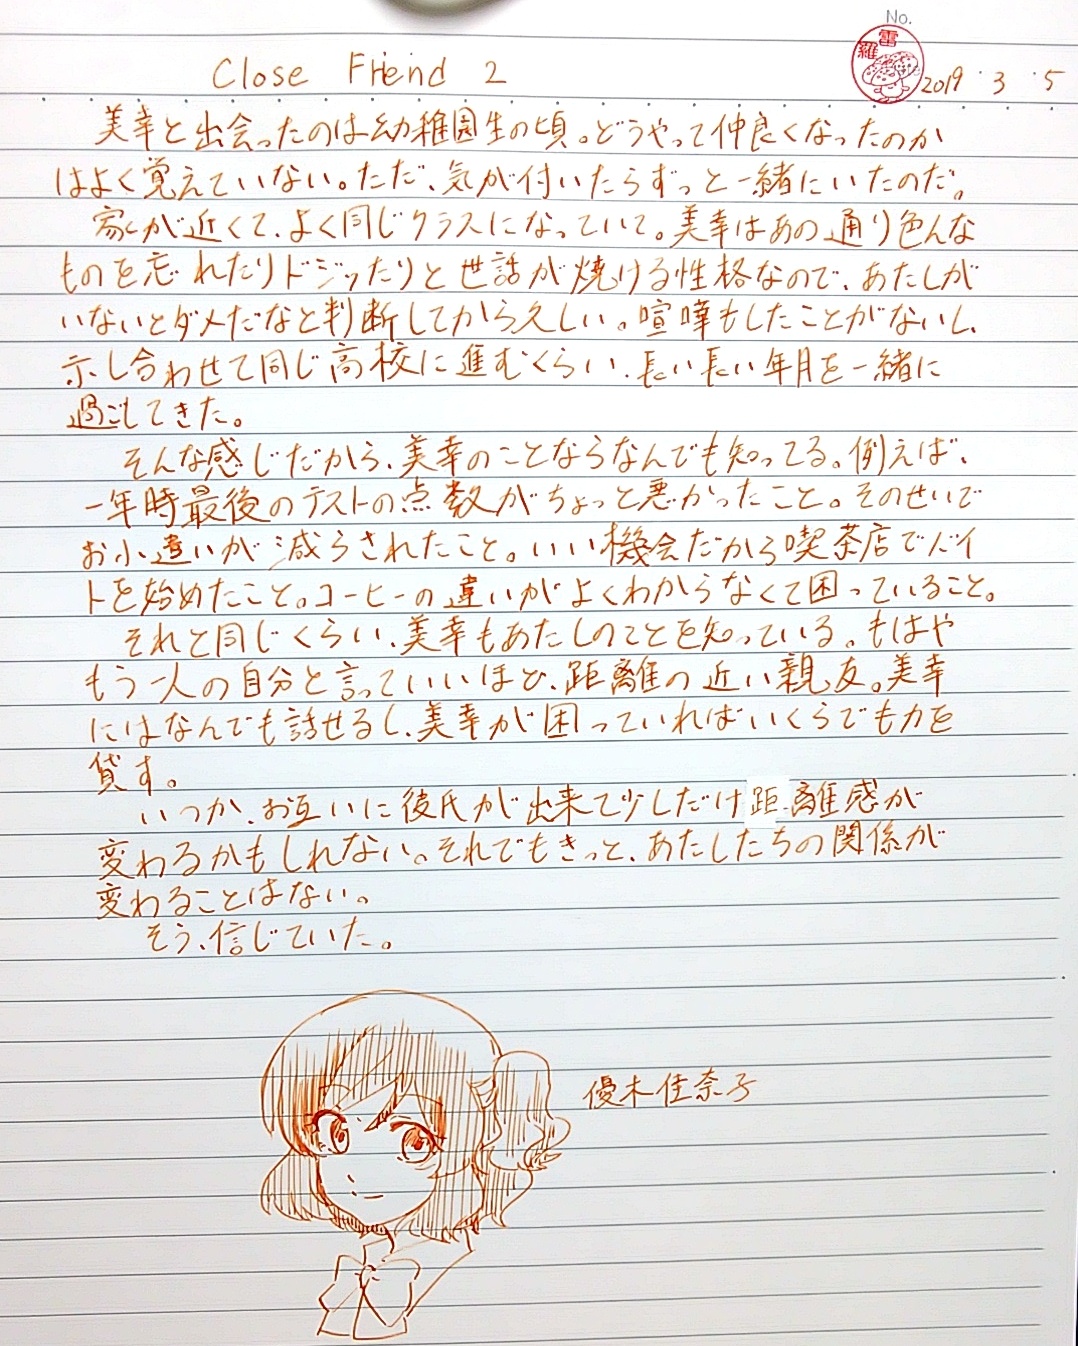 No.
雷
羅
Close Friend 2
2019 3 5
美幸と出会ったのは幼稚園生の頃。どうやって仲良くなったのか
はよく覚えていない。ただ、気が付いたらずっと一緒にいたのだ。
家が近くて、よく同じクラスになっていて。美幸はあの通り色んな
ものを忘れたりドジッたりと世話が焼ける性格なので、あたしが
いないとダメだなと判断してから久しい。喧嘩もしたことがないし、
示し合わせて同じ高校に進むくらい、長い長い年月を一緒に
過ごしてきた。
そんな感じだから、美幸のことならなんでも知ってる。例えば、
一年時最後のテストの点数がちょっと悪かったこと。そのせいで
お小遣いが減らされたこと。いい機会だから喫茶店でバイ
トを始めたこと。コーヒーの違いがよくわからなくて困っていること。
それと同じくらい、美幸もあたしのことを知っている。もはや
もう一人の自分と言っていいほど、距離の近い親友。美幸
にはなんでも話せるし、美幸が困っていればいくらでも力を
貸す。
いつか、お互いに彼氏が出来て少しだけ距離感が
変わるかもしれない。それでもきっと、あたしたちの関係が
変わることはない。
そう、信じていた。
優木佳奈子